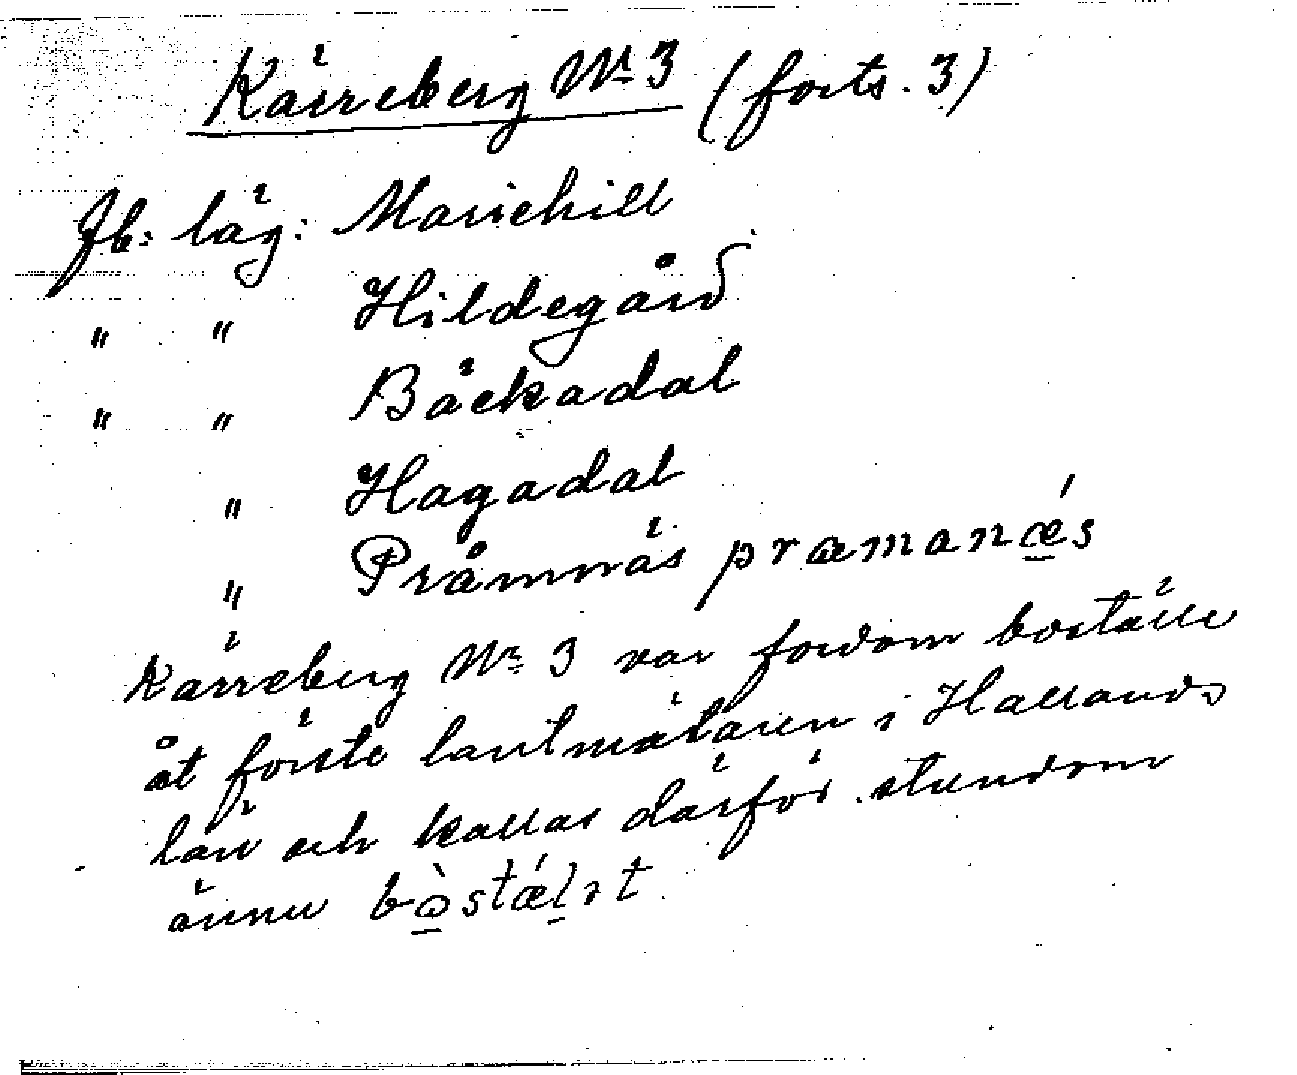 Kärreberg Nr 3 (forts. 3)
Jb: läg: Mariehill
" " Hildegård
" " Bäckadal
" Hagadal
" Pråmnäs præmanǽs
Kärreberg Nr 3 var fordom boställe
åt förste lantmätaren i Hallands
län och kallas därför stundom
ännu